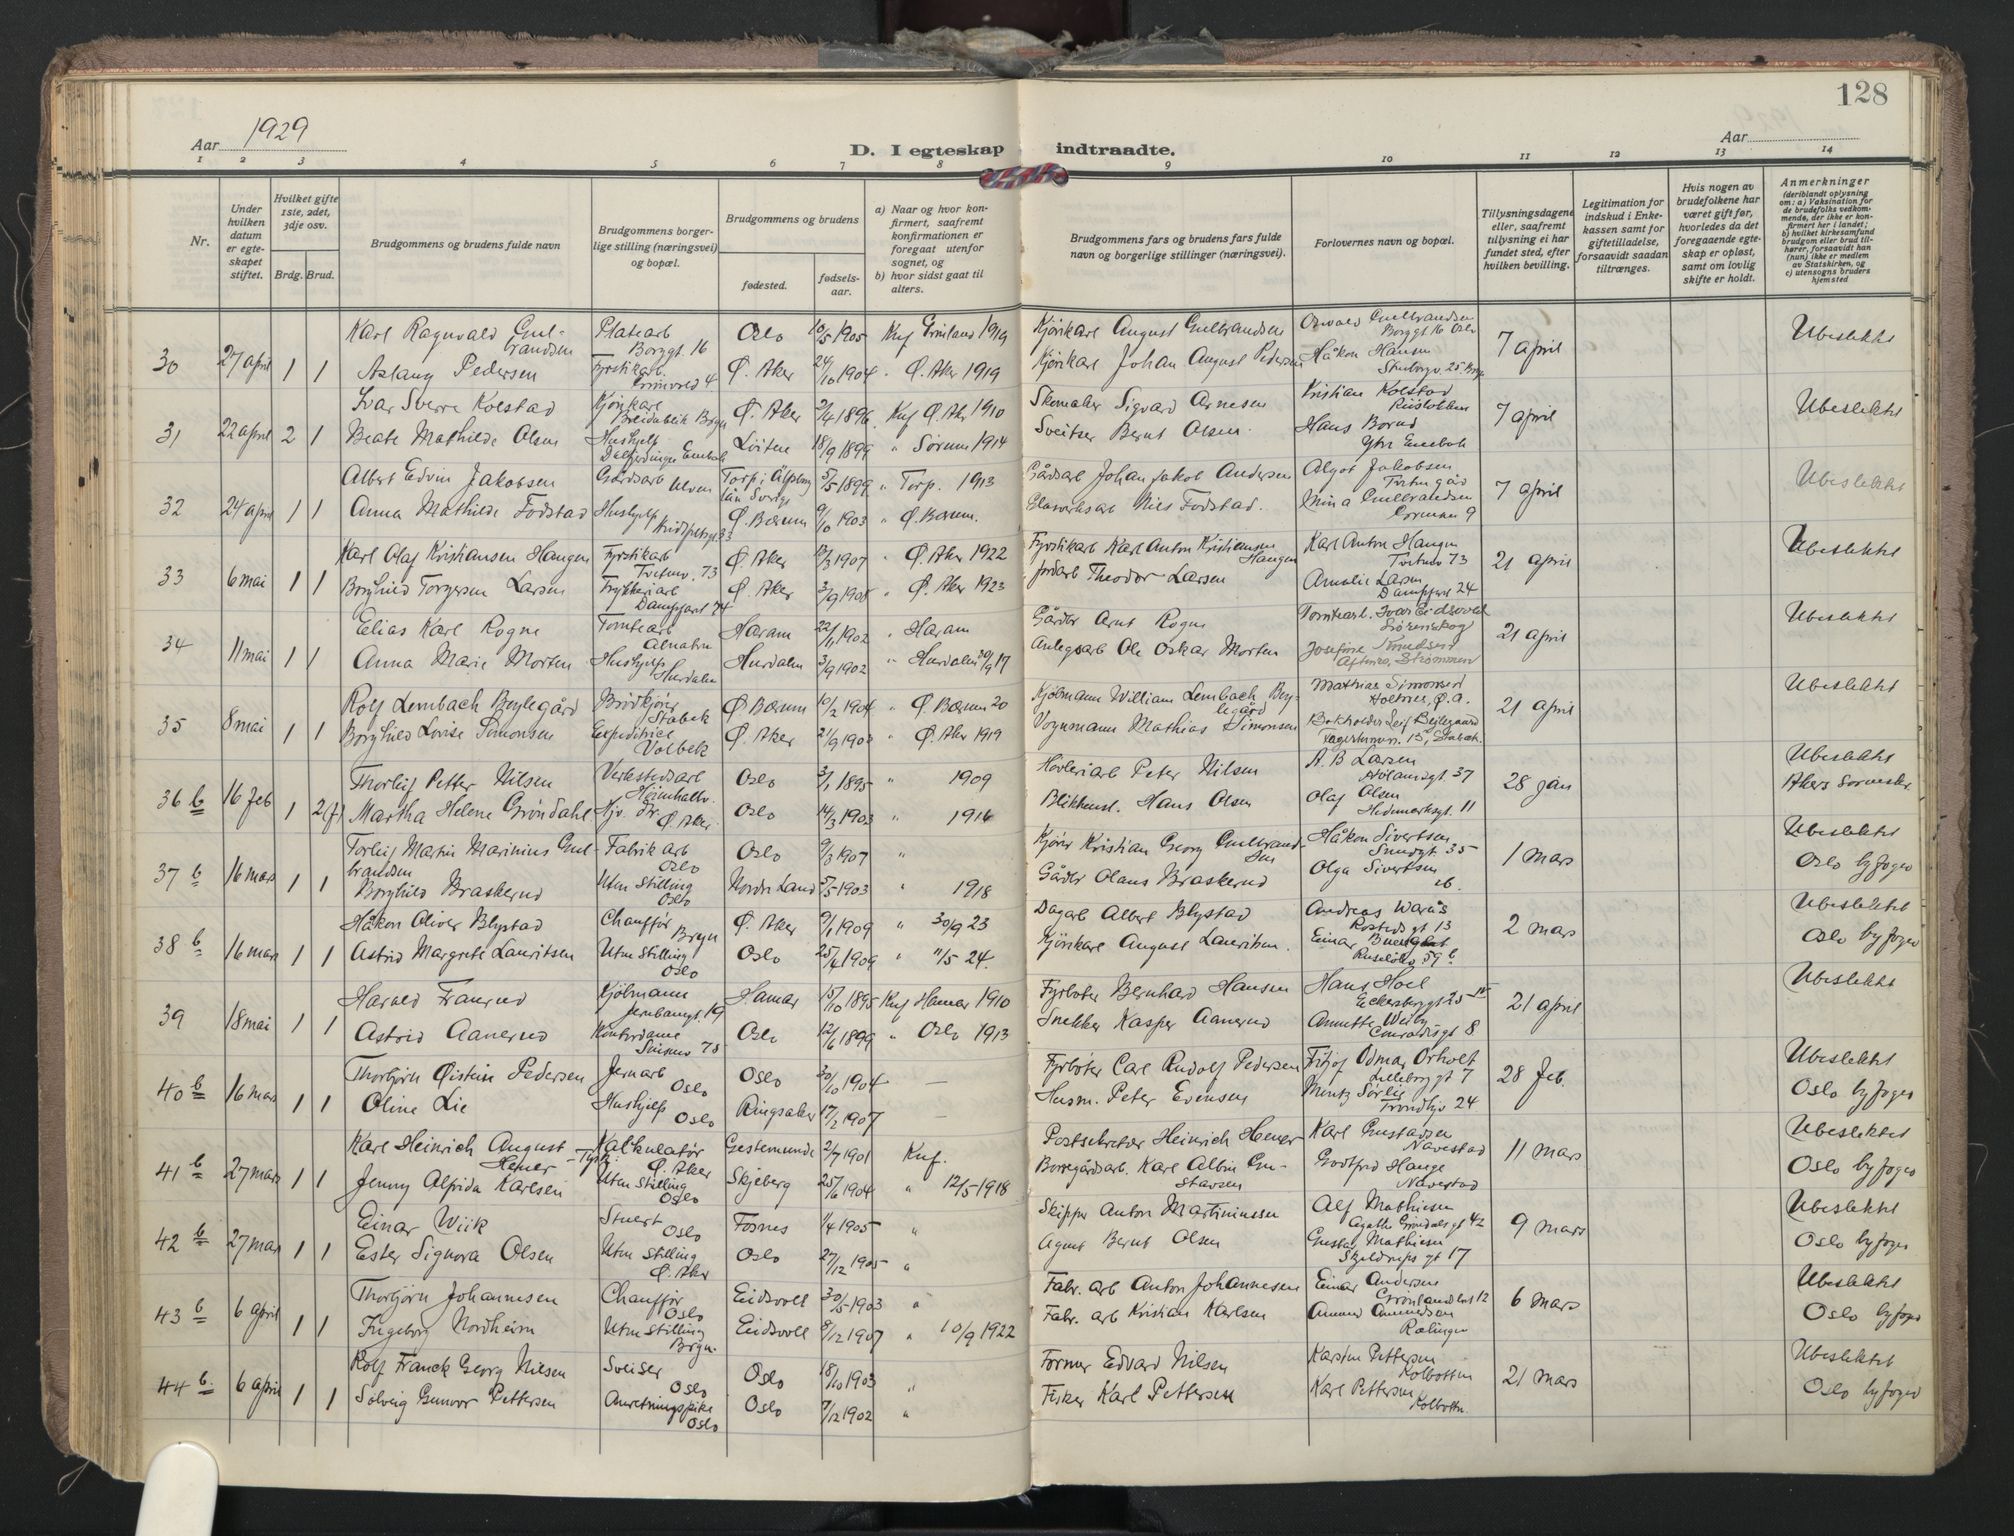 128
Aar 1929
Aar
D. I egteskap indtraadte.
1 2 3 4 5 6 7 8 9 10 11 12 13 14
Nr.
Under hvilken datum er egteskapet stiftet.
Hvilket gifte 1ste, 2det, 3dje osv.
Brdg. Brud.
Brudgommens og brudens fulde navn
Brudgommens borgerlige stilling (næringsvei) og bopæl.
Brudgommens og brudens
fødested.
fødselsaar.
a) Naar og hvor konfirmert, saafremt konfirmationen er foregaat utenfor sognet, og
b) hvor sidst gaat til alters.
Brudgommens fars og brudens fars fulde navn og borgerlige stillinger (næringsvei).
Forlovernes navn og bopæl.
Tillysningsdagene eller, saafremt tillysning ei har fundet sted, efter hvilken bevilling.
Legitimation for indskud i Enkekassen samt for giftetilladelse, forsaavidt saadan tiltrænges.
Hvis nogen av brudefolkene har været gift før, hvorledes da det foregaaende egteskap er opløst, samt om lovlig skifte er holdt.
Anmerkninger
(deriblandt oplysning om: a) Vaksination for de brudefolks vedkommende, der ikke er konfirmert her i landet; b) hvilket kirkesamfund brudgom eller brud tilhører, forsaavidt han (hun) ikke er medlem av Statskirken, og c) utensogns bruders hjemsted
30 27 april 1 1 Karl Ragnvald Gulbrandsen Platearb Borggt. 16 Oslo 10/5 1905 Knf Grønland 1919 Kjørekarl August Gulbrandsen Osvald Gulbrandsen Borggt 16 Oslo 7 april Ubeslektet
Aslaug Pedersen Fyrstikarb. 4 Ø. Aker 24/10 1904 " Ø. Aker 1919 Kjørekarl Johan August Pedersen Håkon Hansen
31 22 april 2 1 Ivar Sverre Kolstad Kjørekarl Breidablik Bryn Ø. Aker 2/4 1896 Knf Ø. Aker 1910 Skomaker Sigvard Arnesen Kristian Kolstad 7 april Ubeslektet
Beate Mathilde Olsen Hushjelp Løiten 18/9 1899 " Sørum 1914 Sveitser Bernt Olsen Hans Ytre Enebak
32 24 april 1 1 Albert Edvin Jakobsen Gårdsarb Ulven Torp i Älfsborg län Sverige 5/5 1899 " Torp. 1913 Gårdsarb Johan Jakob Andersen Algot Jakobsen Tveten gård 7 april Ubeslektet
Anna Mathilde Fodstad Hushjelp Ø. Bærum 9/10 1903 " Ø. Bærum. Glassverksarb Nils Fodstad. Mina Gulbrandsen 9
33 6 mai 1 1 Karl Olaf Kristiansen Haugen Fyrstikarb Tvetenv. 73 Ø. Aker 12/3 1907 " Ø. Aker 1922 Fyrstikarb Karl Anton Kristiansen Haugen Karl Anton Haugen Tvetenv 73 21 april Ubeslektet
Borghild Torgersen Larsen Trykkeriarb Dampsart 24 Ø. Aker 3/9 1908 " Ø. Aker 1923 Jordarb Theodor Larsen Amalie Larsen 24
34 11 mai 1 1 Elias Karl Rogne Tomtearb Alnabru Haram 22/1 1902 " Haram Gårdbr Arnt Rogne Tomtearb. Ivar Eidsvold Lørenskog 21 april Ubeslektet
Anna Marie Morten Hushjelp Hurdalen Hurdalen 3/9 1902 " Hurdalen 30/9 17 Anlegsarb Ole Oskar Morten Josefine Knudsen Strømmen
35 8 mai 1 1 Rolf Lembach Beylegård Brødkjører Stabek Ø Bærum 10/2 1904 " Ø Bærum 20 Kjøbmann William Lembach Beylegård Mathias Simonsen Ø. A. 21 april Ubeslektet
Borghild Lovise Simonsen Expeditrice Volbek Ø. Aker 21/9 1903 " Ø. Aker 1919 Vognmann Mathias Simonsen Bokholder Leif Beylegaard 13, Stabæk.
36 b 16 feb 1 2(f) Thorleif Petter Nilsen Verkstedsarb Oslo 3/1 1895 " 1909 Høvleriarb Peter Nilsen A. B Larsen 37 28 jan Ubeslektet
Martha Helene Grøndahl Hjv. Ø. Aker. Oslo 14/3 1903 " 1916 Blikkensl. Hans Olsen Olaf Olsen Hedemarksgt. 11 Akers Sorenskr
37 b 16 mars 1 1 Torleif Martin Marinius Gulbrandsen Fabrikarb Oslo Oslo 9/3 1907 " Kjører Kristian Georg Gulbrandsen Håkon Sivertsen 35 1 mars Ubeslektet
Borghild Braskerud Uten Stilling Oslo Nordre Land 5/5 1903 " 1918 Gårdbr Olaus Braskerud Olga Sivertsen ib. Oslo byfoged
38 b 16 mars 1 1 Håkon Oliver Blystad Chauffør Bryn Ø. Aker 9/1 1909 " 30/9 23 Dagarb Albert Blystad Andreas 13 2 mars Ubeslektet
Astrid Margrete Lauritsen Uten Stilling Oslo Oslo 25/4 1909 " 11/5 24. Kjørekarl August Lauritsen. Einar 59 b Oslo byfoged
39 18 mai 1 1 Harald Franerud Kjøbmann Jernbanegt. 19 Hamar 15/10 1895 Knf Hamar 1910 Fyrbøter Bernhard Hansen Hans Hoel Eckersbergsgt 25 21 april Ubeslektet
Astrid Aanerud Kontordame 78 Oslo 12/6 1899 " Oslo 1913 Snekker Kasper Aanerud Annette Conradisgt 8
40 b 16 mars 1 1 Thorbjørn Øistein Pedersen Jernarb Oslo Oslo 30/10 1904 — Fyrbøter Carl Rudolf Pedersen Fritjof Odmar Orholt Lilleborggt 7 28 feb. Ubeslektet
Oline Lie Hushjelp Oslo Ringsaker 17/2 1907 — Husm. Peter Evensen Sørlie Trondhjv 24 Oslo byfoged
41 b 27 mars 1 1 Karl Heinrich August Hener - Tysk Kalkulatør Ø. Aker Gestemunde 2/7 1901 Knf. Postsekretær Heinrich Hener Karl Gustavsen Navestad 11 mars Ubeslektet
Jenny Alfrida Karlsen Uten Stilling Oslo Skjeberg 25/6 1904 " 12/5 1918 Borregårdsarb. Karl Albin Gustavsen Godtfred Hauge Navestad Oslo byfoged
42 b 27 mars 1 1 Einar Wiik Stuert Oslo Fosnes 1/4 1905 " Skipper Anton Martiniussen Alf Mathiesen Agathe Grøndalsgt 42 9 mars Ubeslektet
Ester Signora Olsen Uten Stilling Ø. Aker Oslo 27/12 1905 " Agent Bernt Olsen Gustav Mathiesen Skjeldrupsgt 17 Oslo byfoged
43 b 6 april 1 1 Thorbjørn Johannesen Chauffør Oslo Eidsvoll 30/5 1903 " Fabr. arb Anton Johannesen Einar Andersen 12 6 mars Ubeslektet
Ingeborg Nordheim Uten Stilling Bryn. Eidsvoll 8/12 1907 " 10/9 1922 Fabr. arb Kristian Karlsen Amund Amundsen Rælingen Oslo byfoged
44 b. 6 april 1 1 Rolf Franck Georg Nilsen Sveiser Oslo Oslo 18/10 1903 " Former Edvard Nilsen Karsten Pettersen Kolbotten 21 mars Ubeslektet
Solveig Gunvor Pettersen Anretningspike Oslo Oslo 7/12 1902 " Fisker Karl Pettersen Karl Pettersen Kolbottn. Oslo byfoged